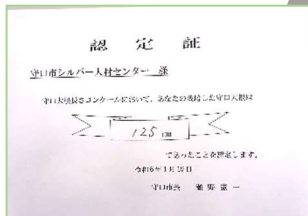 認定証
守口市シルバー人材センター 様
守口大根長さコンクールにおいて、あなたの栽培した守口大根は
125 cm
であったことを認定します。
令和6年1月19日
守口市長 瀬野憲一